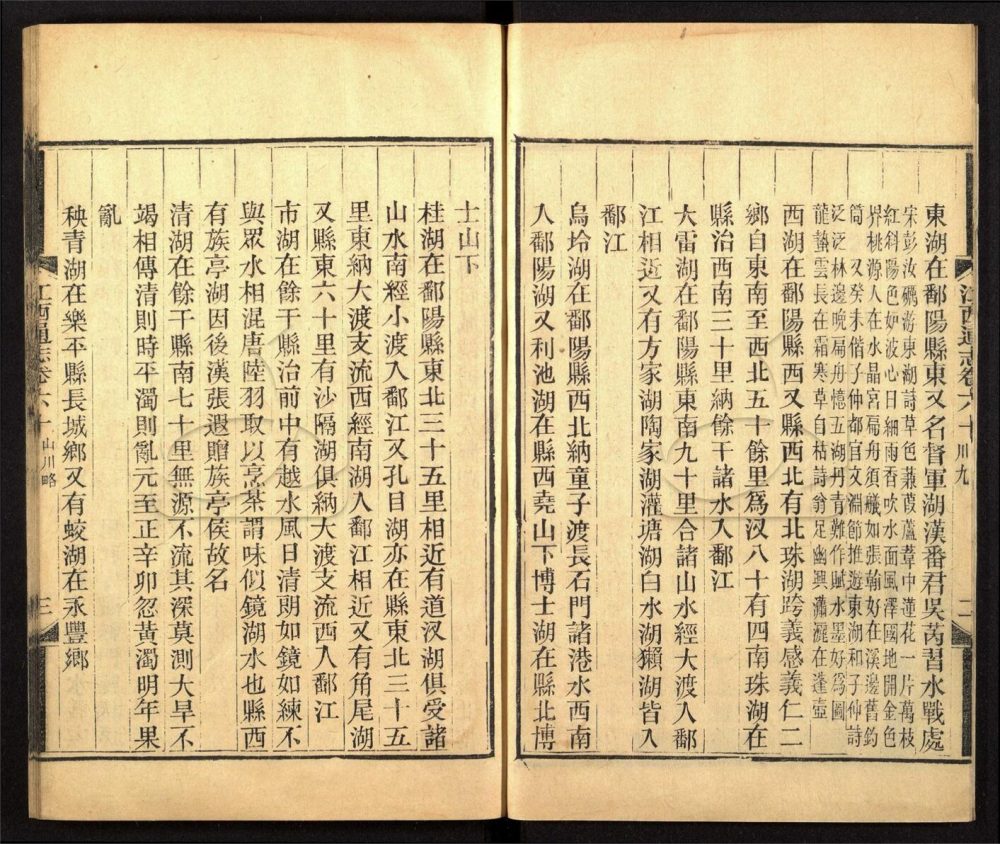 江西通志卷六十 川九 二
東湖在鄱陽縣東又名督軍湖漢番君吳芮習水戰處
宋彭汝礪游東湖詩草色蒹葭蘆葦中蓮花一片萬枝
紅斜陽色妒波心日細雨香吹水面風澤國地開金色
界桃源人在水晶宮扁舟須檥如張翰好在溪邊舊釣
筒 又癸未偕子仲都官文淵節推遊東湖和子仲詩
泛泛林邊晚扁舟憶五湖丹青難作賦水墨好爲圖
龍蟄雲長在霜寒草自枯詩翁足幽興瀟灑在蓬壺
西湖在鄱陽縣西又縣西北有北珠湖跨義感義仁二
鄉自東南至西北五十餘里爲汊八十有四南珠湖在
縣治西南三十里納餘干諸水入鄱江
大雷湖在鄱陽縣東南九十里合諸山水經大渡入鄱
江相近又有方家湖陶家湖灌塘湖白水湖獺湖皆入
鄱江
烏坽湖在鄱陽縣西北納童子渡長石門諸港水西南
入鄱陽湖又利池湖在縣西堯山下博士湖在縣北博
士山下
桂湖在鄱陽縣東北三十五里相近有道汊湖俱受諸
山水南經小渡入鄱江又孔目湖亦在縣東北三十五
里東納大渡支流西經南湖入鄱江相近又有角尾湖
又縣東六十里有沙隔湖俱納大渡支流西入鄱江
市湖在餘干縣治前中有越水風日清朗如鏡如練不
與眾水相混唐陸羽取以烹茶謂味似鏡湖水也縣西
有族亭湖因後漢張遐贈族亭侯故名
清湖在餘干縣南七十里無源不流其深莫測大旱不
竭相傳清則時平濁則亂元至正辛卯忽黃濁明年果
亂
秧青湖在樂平縣長城鄉又有蛟湖在永豐鄉
江西通志卷六十 山川略 三